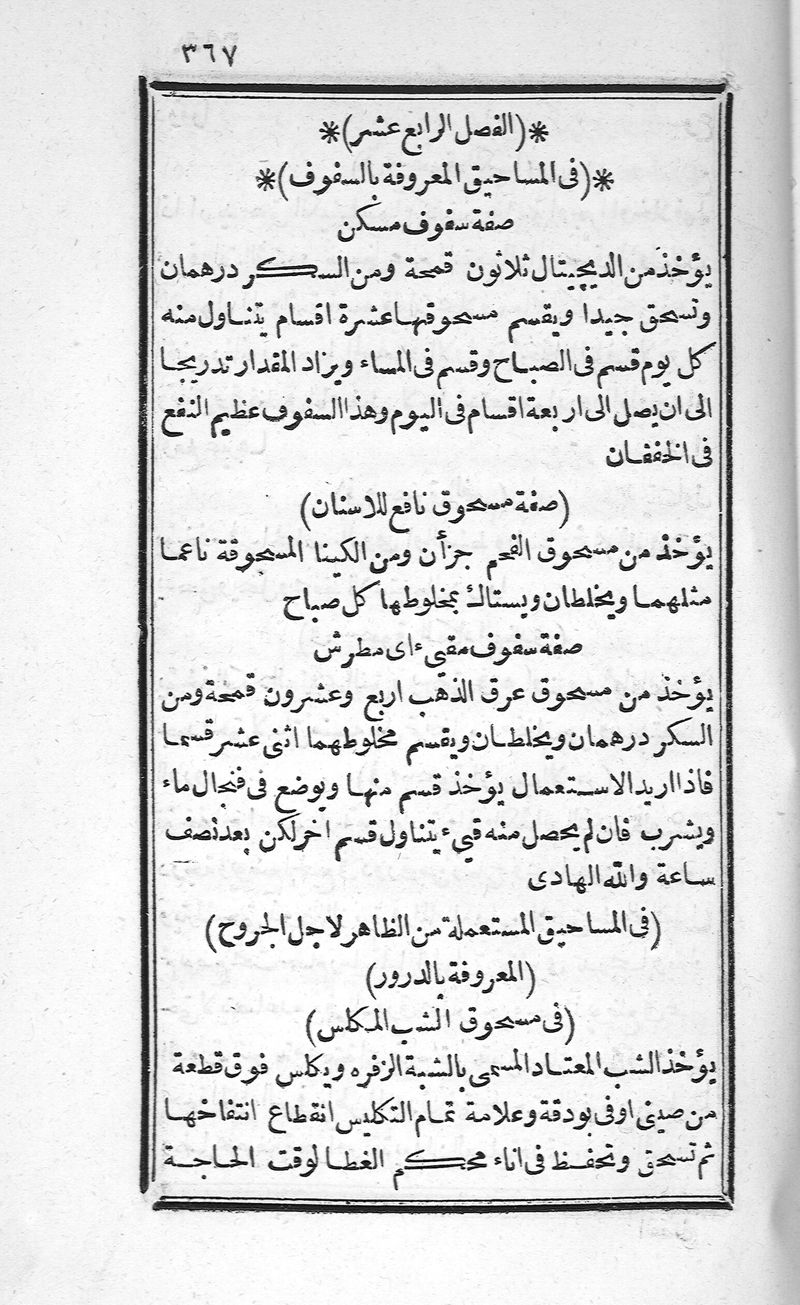 ٣٦٧
*(الفصل الرابع عشر)*
*(فى المساحيق المعروفة بالسفوف)*
صفة سفوف مسكن
يؤخذ من الديجيتال ثلاثون قمحة ومن السكر درهمان
وتسحق جيدا ويقسم مسحوقها عشرة اقسام يتناول منه
كل يوم قسم فى الصباح وقسم فى المساء ويزاد المقدار تدريجا
الى ان يصل الى اربعة اقسام فى اليوم وهذا السفوف عظيم النفع
فى الخفقان
(صفة مسحوق نافع للاسنان)
يؤخذ من مسحوق الفحم جزأن ومن الكينا المسحوقة ناعما
مثلهما ويخلطان ويستاك بمخلوطها كل صباح
صفة سفوف مقيىء اى مطرش
يؤخذ من مسحوق عرق الذهب اربع وعشرون قمحة ومن
السكر درهمان ويخلطان ويقسم مخلوطهما اثنى عشر قسما
فاذا اريد الاستعمال يؤخذ قسم منها ويوضع فى فنجال ماء
ويشرب فان لم يحصل منه قيىء يتناول قسم اخر لكن بعد نصف
ساعة والله الهادى
(فى المساحيق المستعملة من الظاهر لاجل الجروح)
(المعروفة بالدرور)
(فى مسحوق الشب المكلس)
يؤخذ الشب المعتاد المسمى بالشبة الزفره ويكلس فوق قطعة
من صينى اوفى بودقة وعلامة تمام التكليس انقطاع انتفاخها
ثم تسحق وتحفظ فى اناء محكم الغطا لوقت الحاجة